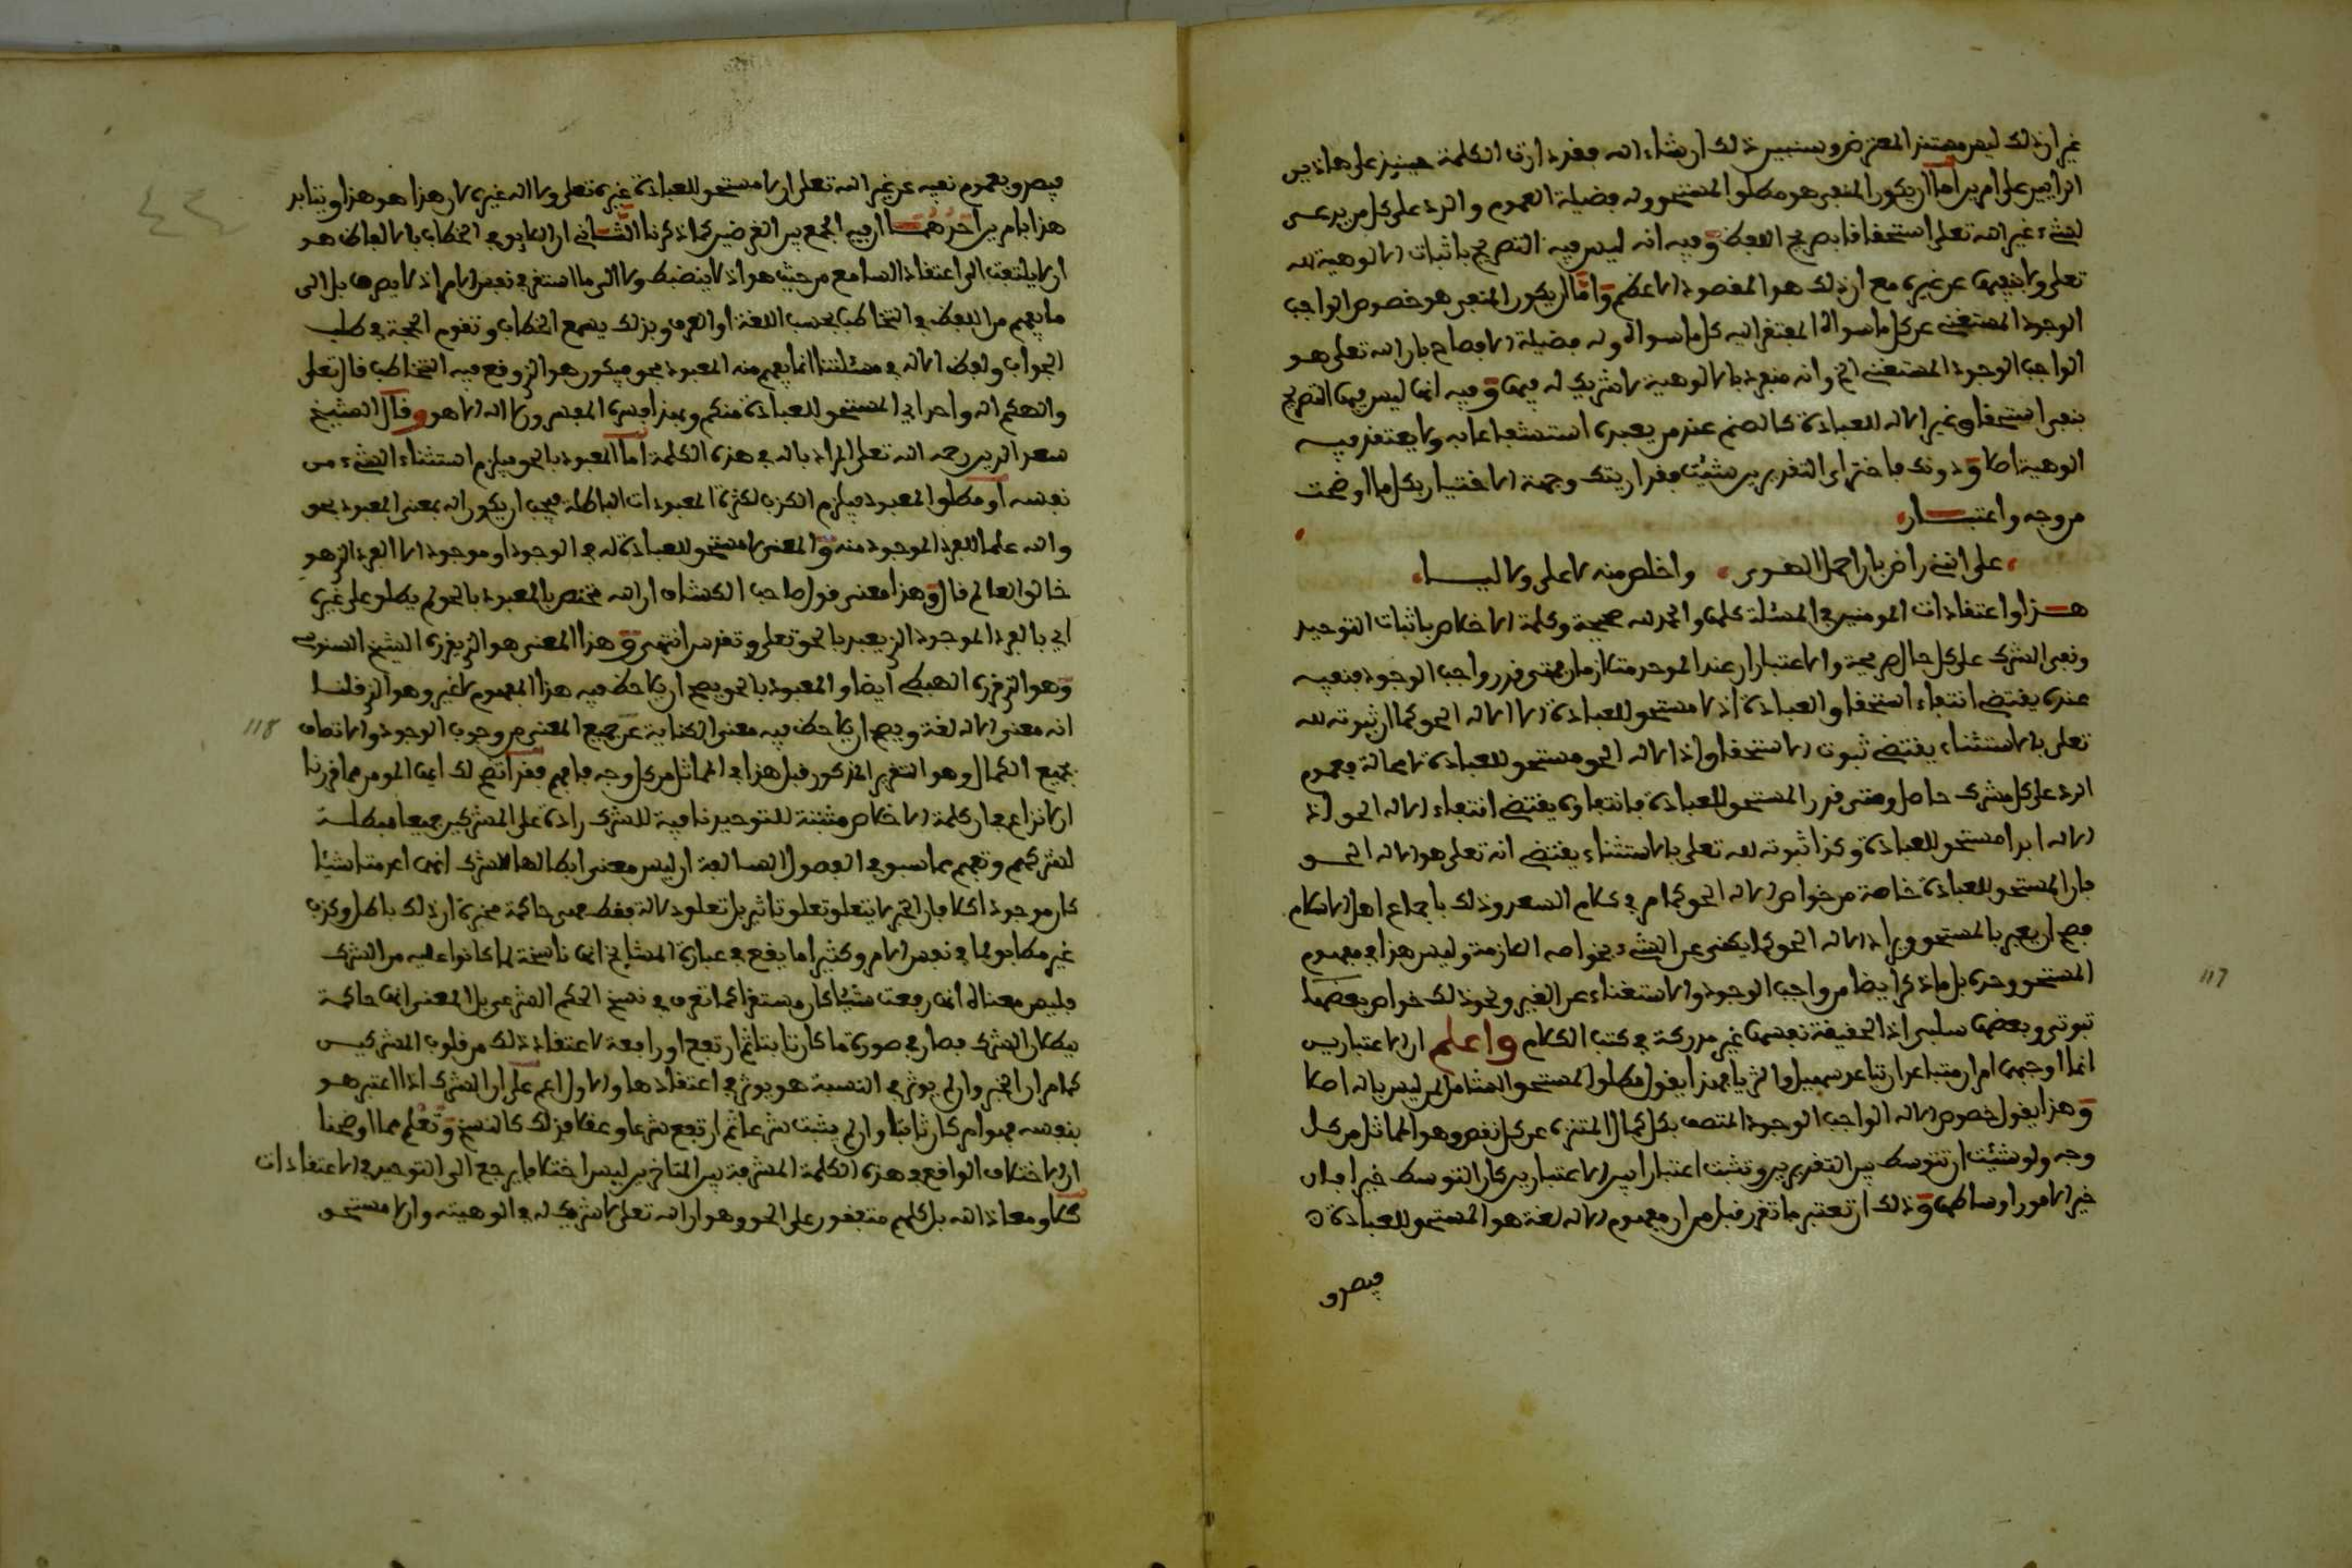 غير ان ذلك ليس مستند المعترض وسنبين ذلك ان شاء الله فقد دارت الكلمة حينئذ على هاذين
الرأيين على امرين اما ان يكون المنفي هو مطلق المستحق وله فضيلة العموم والرد على كل من يدعي
لشيء غير الله تعلى استحقاقا بصريح اللفظ وفيه انه ليس فيه التصريح باثبات الالوهية لله
تعلى ولا بنفيها عن غيره مع ان ذلك هو المقصود الاعظم واما ان يكون المنفي هو خصوص الواجب
الوجود المستغني عن كل ما سواه المفتقر اليه كل ما سواه وله فضيلة الافصاح بان الله تعلى هو
الواجب الوجود المستغني الخ وانه منفرد بالالوهية لا شريك له فيها وفيه انها ليس فيها التصريح
بنفي استحقاق غير الاله للعبادة كالصنم عند من يعبده استشفاعا به ولا يعتقد فيه
الوهية اصلا ودونك فاختر اي التقديرين شئت فقد اريتك وجهة الاختيار بكل ما اوضحت
من وجه واعتبار
على انني راض بان احمل الهوى واخلص منه لا علي ولا ليا
هذا واعتقادات المومنين في المسئلة كلها والحمد لله صحيحة وكلمة الاخلاص باثبات التوحيد
ونفي الشرك على كل حال صريحة والاعتباران عند الموحد متلازمان فمتى قدر واجب الوجود فنفيه
عنده يقتضي انتفاء استحقاق العبادة اذ لا مستحق للعبادة الا الاله الحق كما ان ثبوته لله
تعلى بالاستثناء يقتضي ثبوت الاستحقاق اذ الاله الحق مستحق للعبادة لا محالة فعموم
الرد على كل مشرك حاصل ومتى قدر المستحق للعبادة فانتفاؤه يقتضي انتفاء الاله الحق اذ
الاله ابدا مستحق للعبادة وكذا ثبوته لله تعلى بالاستثناء يقتضي انه تعلى هو الاله الحق
فان المستحق للعبادة خاصة من خواص الاله الحق كما مر في كلام السعد وذلك باجماع اهل الاسلام
فصح ان يعبر بالمستحق ويراد الاله الحق كما يكنى عن الشيء بخواصه اللازمة وليس هذا في مفهوم
المستحق وحده بل ما ذكر ايضا من واجب الوجود والاستغناء عن الغير ونحو ذلك خواص بعضها
ثبوتي وبعضها سلبي اذ الحقيقة نفسها غير مدركة في كتب الكلام واعلم ان الاعتبارين
انما اوجبهما امران متباعدان تباعد سهيل والثريا فهذا يقول مطلق المستحق الشامل لمن ليس باله اصلا
وهذا يقول خصوص الاله الواجب الوجود المتصف بكل كمال المتنزه عن كل نقص وهو المماثل من كل
وجه ولو شئت ان تتوسط بين التقديرين وتثبت اعتبارا بين الاعتبارين كان التوسط خيرا فان
خير الامور اوساطها وذلك ان تعتبر ما تقرر قبل من ان مفهوم الاله لغة هو المستحق للعبادة
فيصدق
117
فيصدق بعموم نفيه عن غير الله تعلى ان لا مستحق للعبادة غيره تعلى ولا اله غيره لان هذا هو هذا ويتايد
هذا بامرين احدهما ان فيه الجمع بين الغرضين كما ذكرنا الثاني ان اللائق في الخطاب بالالفاظ هو
ان لا يلتفت الى اعتقاد السامع من حيث هو اذ لا ينضبط ولا الى ما استقر في نفس الامر اذ لا يعرفه بل الى
ما يفهم من اللفظ في التخاطب بحسب اللغة او العرف وبذلك يسمع الخطاب وتقوم الحجة في طلب
الجواب ولفظ الاله في مسئلتنا انما يفهم منه المعبود بحق فيكون هو الذي وقع فيه التخاطب قال تعلى
والهكم اله واحد اي المستحق للعبادة منكم وبهذا فسره المفسرون لا اله الا هو وقال الشيخ
سعد الدين رحمه الله تعلى المراد باله في هذه الكلمة اما المعبود بالحق فيلزم استثناء الشيء من
نفسه او مطلق المعبود فيلزم الكذب لكثرة المعبودات الباطلة فيجب ان يكون اله بمعنى المعبود بحق
والله علما للفرد الموجود منه والمعنى لا مستحق للعبادة له في الوجود او موجود الا الفرد الذي هو
خالق العالم قال وهذا معنى قول صاحب الكشاف ان الله مختص بالمعبود بالحق لم يطلق على غيره
اي بالفرد الموجود الذي يعبد بالحق تعلى وتقدس انتهى وهذا المعنى هو الذي قرره الشيخ السنوسي
وهو الذي قرره الهبطي ايضا والمعبود بالحق يصح ان يلاحظ فيه هذا المفهوم لا غير وهو الذي قلنا
انه معنى الاله لغة ويصح ان يلاحظ فيه معنى الكناية عن جميع المعنى من وجوب الوجود والاتصاف
بجميع الكمال وهو التقدير المذكور قبل هذا في المماثل من كل وجه فافهم فقد اتضح لك ايها المومن مما قررنا
ان لا نزاع في ان كلمة الاخلاص مثبتة للتوحيد نافية للشرك رادة على المشركين جميعا مبطلة
لشركهم وتفهم مما سبق في الفصول السالفة ان ليس معنى ابطالها للشرك انها اعدمت شيئا
كان موجودا كلا فان الخبر لا يتعلق تعلق تاثير بل تعلق دلالة فقط فهي حاكمة مخبرة ان ذلك باطل وكذب
غير مطابق لما في نفس الامر وكثيرا ما يقع في عبارة المشايخ انها ناسخة لما كانوا عليه من الشرك
فليس معناه انها رفعت شيئا كان مستقرا كما تعرف في نسخ الحكم الشرعي بل المعنى انها حاكمة
ببطلان الشرك فصار في صورة ما كان ثابتا ثم ارتفع او رافعة لاعتقاد ذلك من قلوب المشركين
كما مر ان الخبر وان لم يوثر في النسبة هو يوثر في اعتقادها والاول اعم على ان الشرك اذا اعتبر هو
بنفسه فهو امر كان ثابتا وان لم يثبت شرعا ثم ارتفع شرعا وعقلا فذلك كالنسخ وتعلم مما اوضحنا
ان الاختلاف الواقع في هذه الكلمة المشرفة بين المتاخرين ليس اختلافا يرجع الى التوحيد في الاعتقادات
كلا ومعاذ الله بل كلهم متفقون على الحق وهو ان الله تعلى لا شريك له في الوهيته وان لا مستحق
118